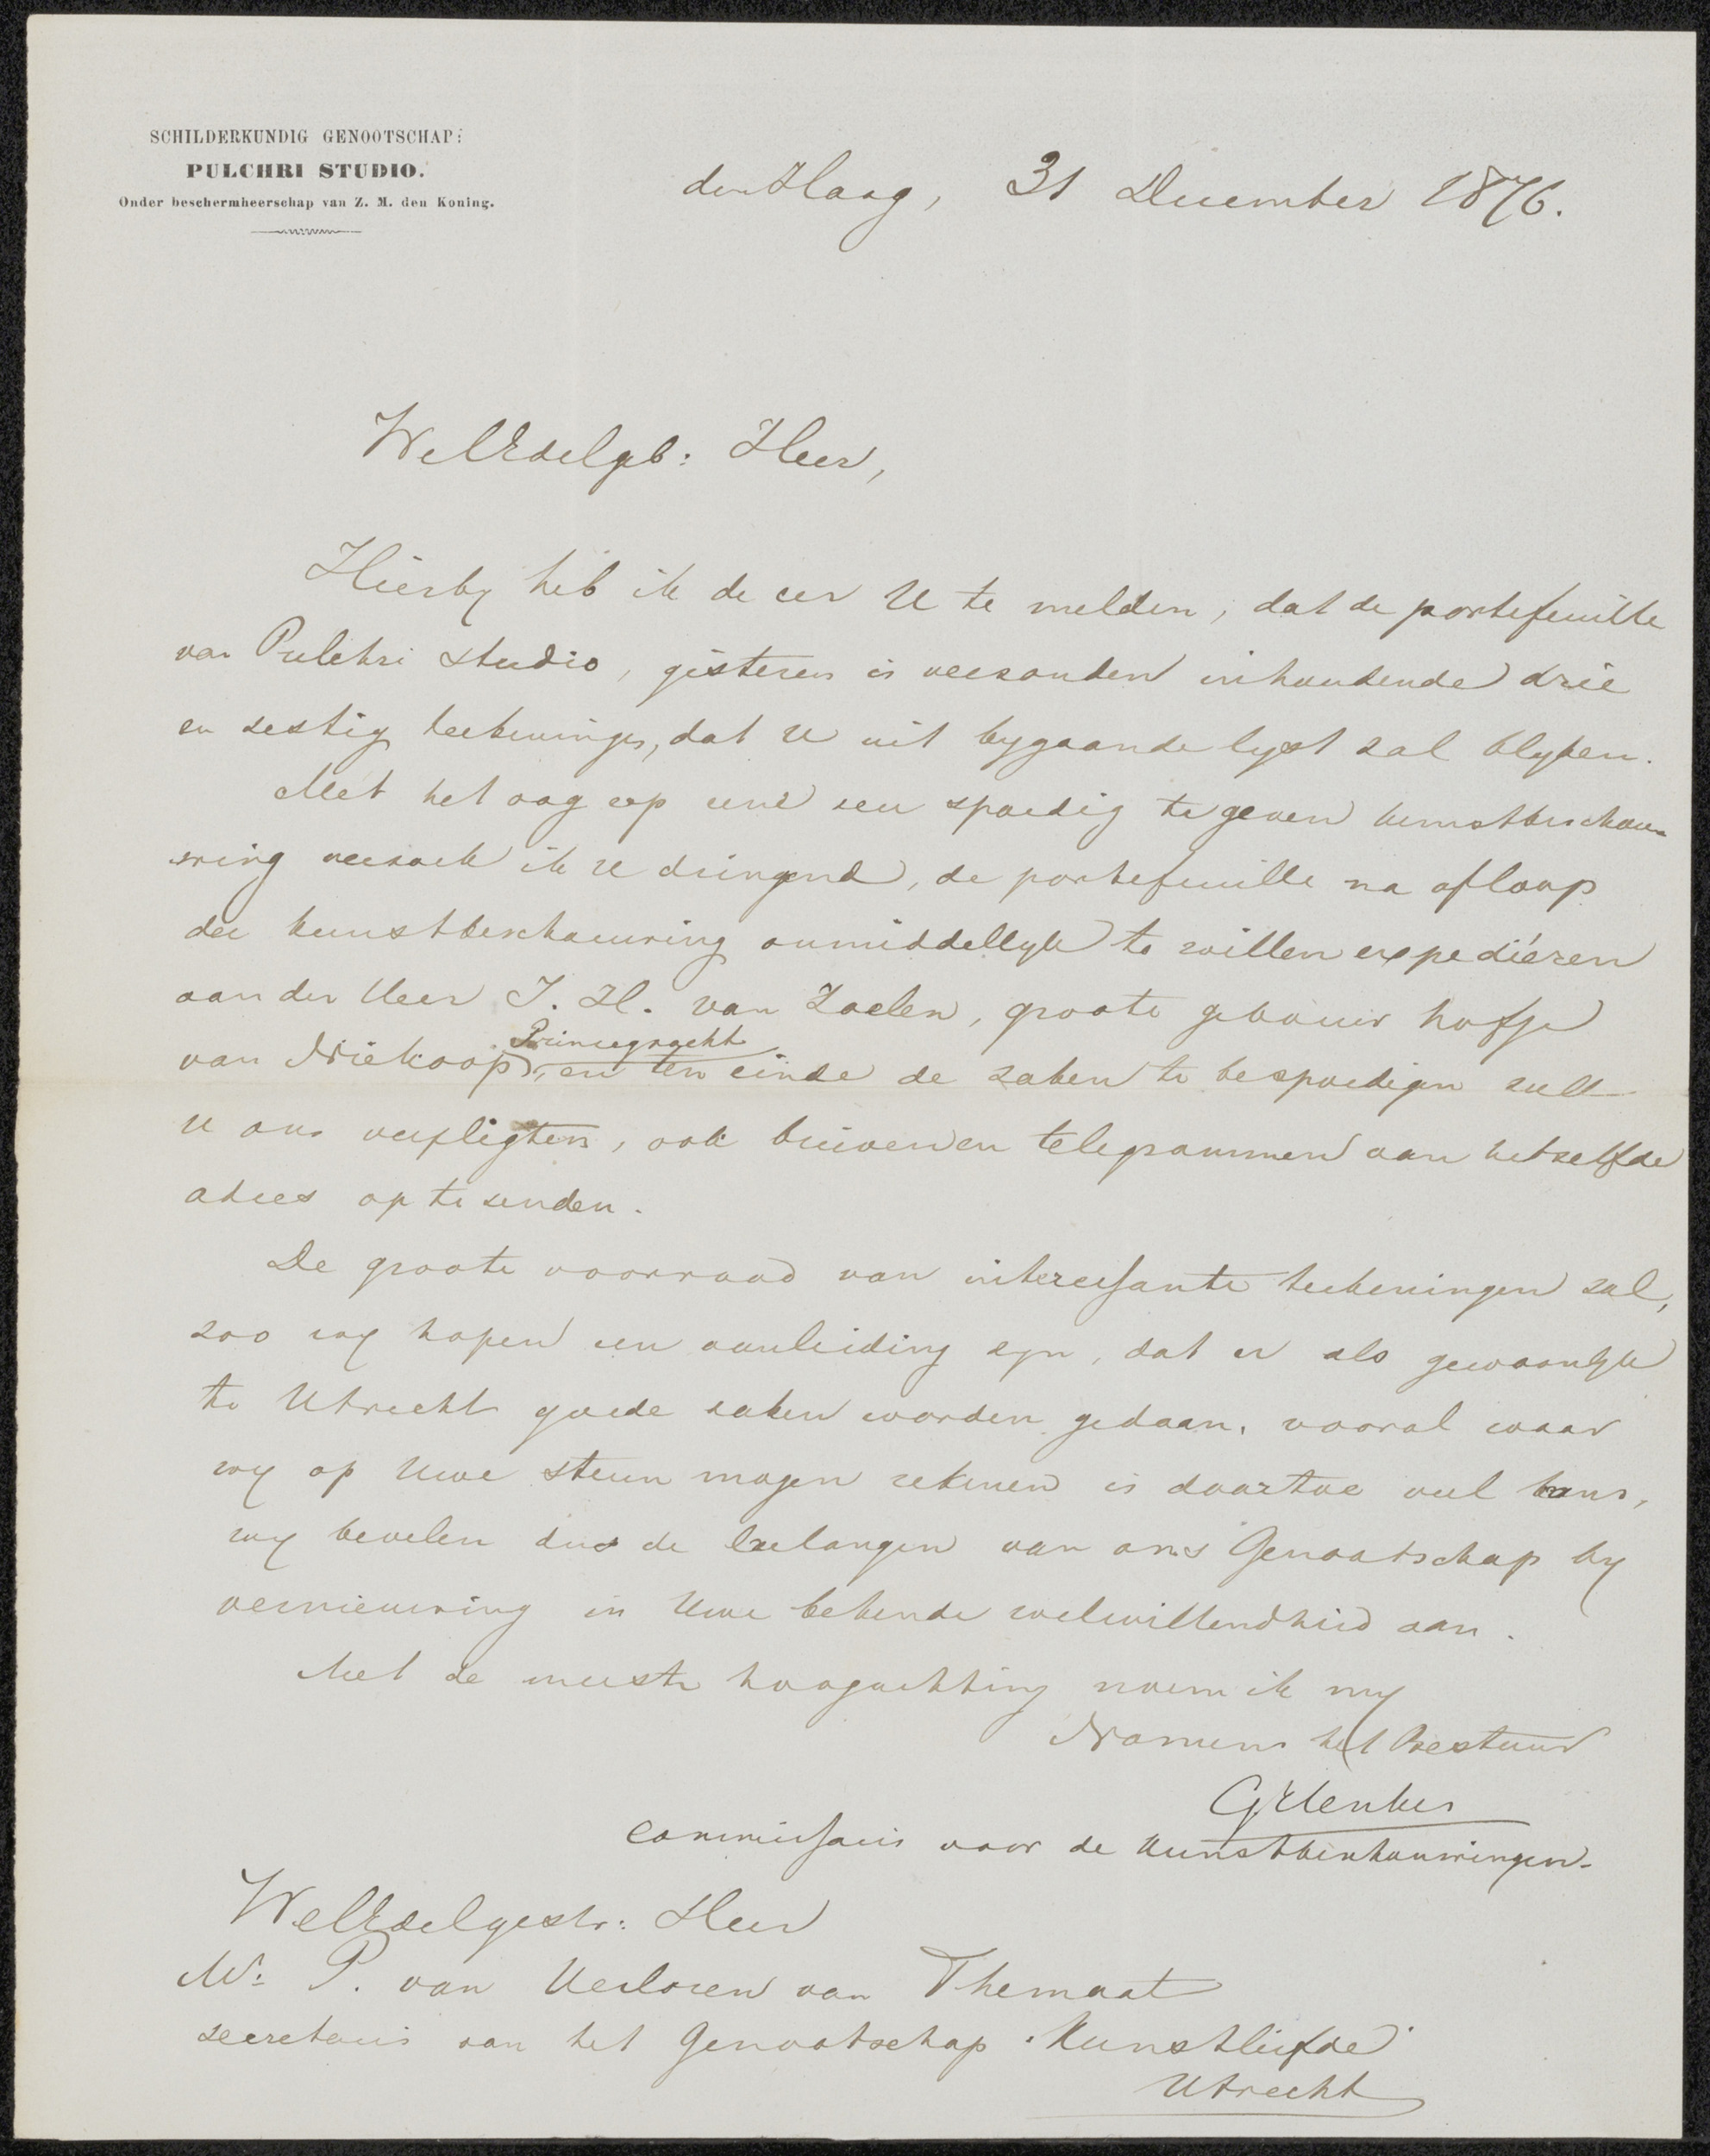 SCHILDERKUNDIG GENOOTSCHAP:
PULCHRI STUDIO.
Onder beschermheerschap van Z. M. den Koning.
den Haag, 31 December 1876.
WelEdelgeb: Heer,
Hierby heb ik de eer U te melden, dat de portefeuille
van Pulchri Studio, gisteren is versonden inhoudende drie
en sestig teekeningen, dat U uit bygaande lyst zal blyken.
Met het oog op eene een spoedig te geven kunstbeschou-
wing versoek ik U dringend, de portefeuille na afloop
der kunstbeschouwing onmiddellyk te willen expediëren
aan den Heer J. H. van Zoelen, groote gebouw hofje
van Niekoop, Prinsegracht en ten einde de zaken te bespoedigen zult
U ons verpligten, ook brieven en telegrammen aan hetzelfde
adres op te senden.
De groote voorraad van interessante teekeningen zal,
zoo wy hopen een aanleiding zyn, dat er als gewoonlyk
te Utrecht goede zaken worden gedaan, vooral waar
wy op Uwe steun mogen rekenen is daartoe veel kans,
wy bevelen dus de belangen van ons Genootschap by
vernieuwing in Uwe bekende welwillendheid aan.
Met de meeste hoogachting noem ik my
Namens het Bestuur
G Henkes
commissaris voor de Kunstbeschouwingen.
WelEdelgestr: Heer
Mr. P. van Verloren van Themaat
secretaris van het Genootschap "Kunstliefde"
Utrecht